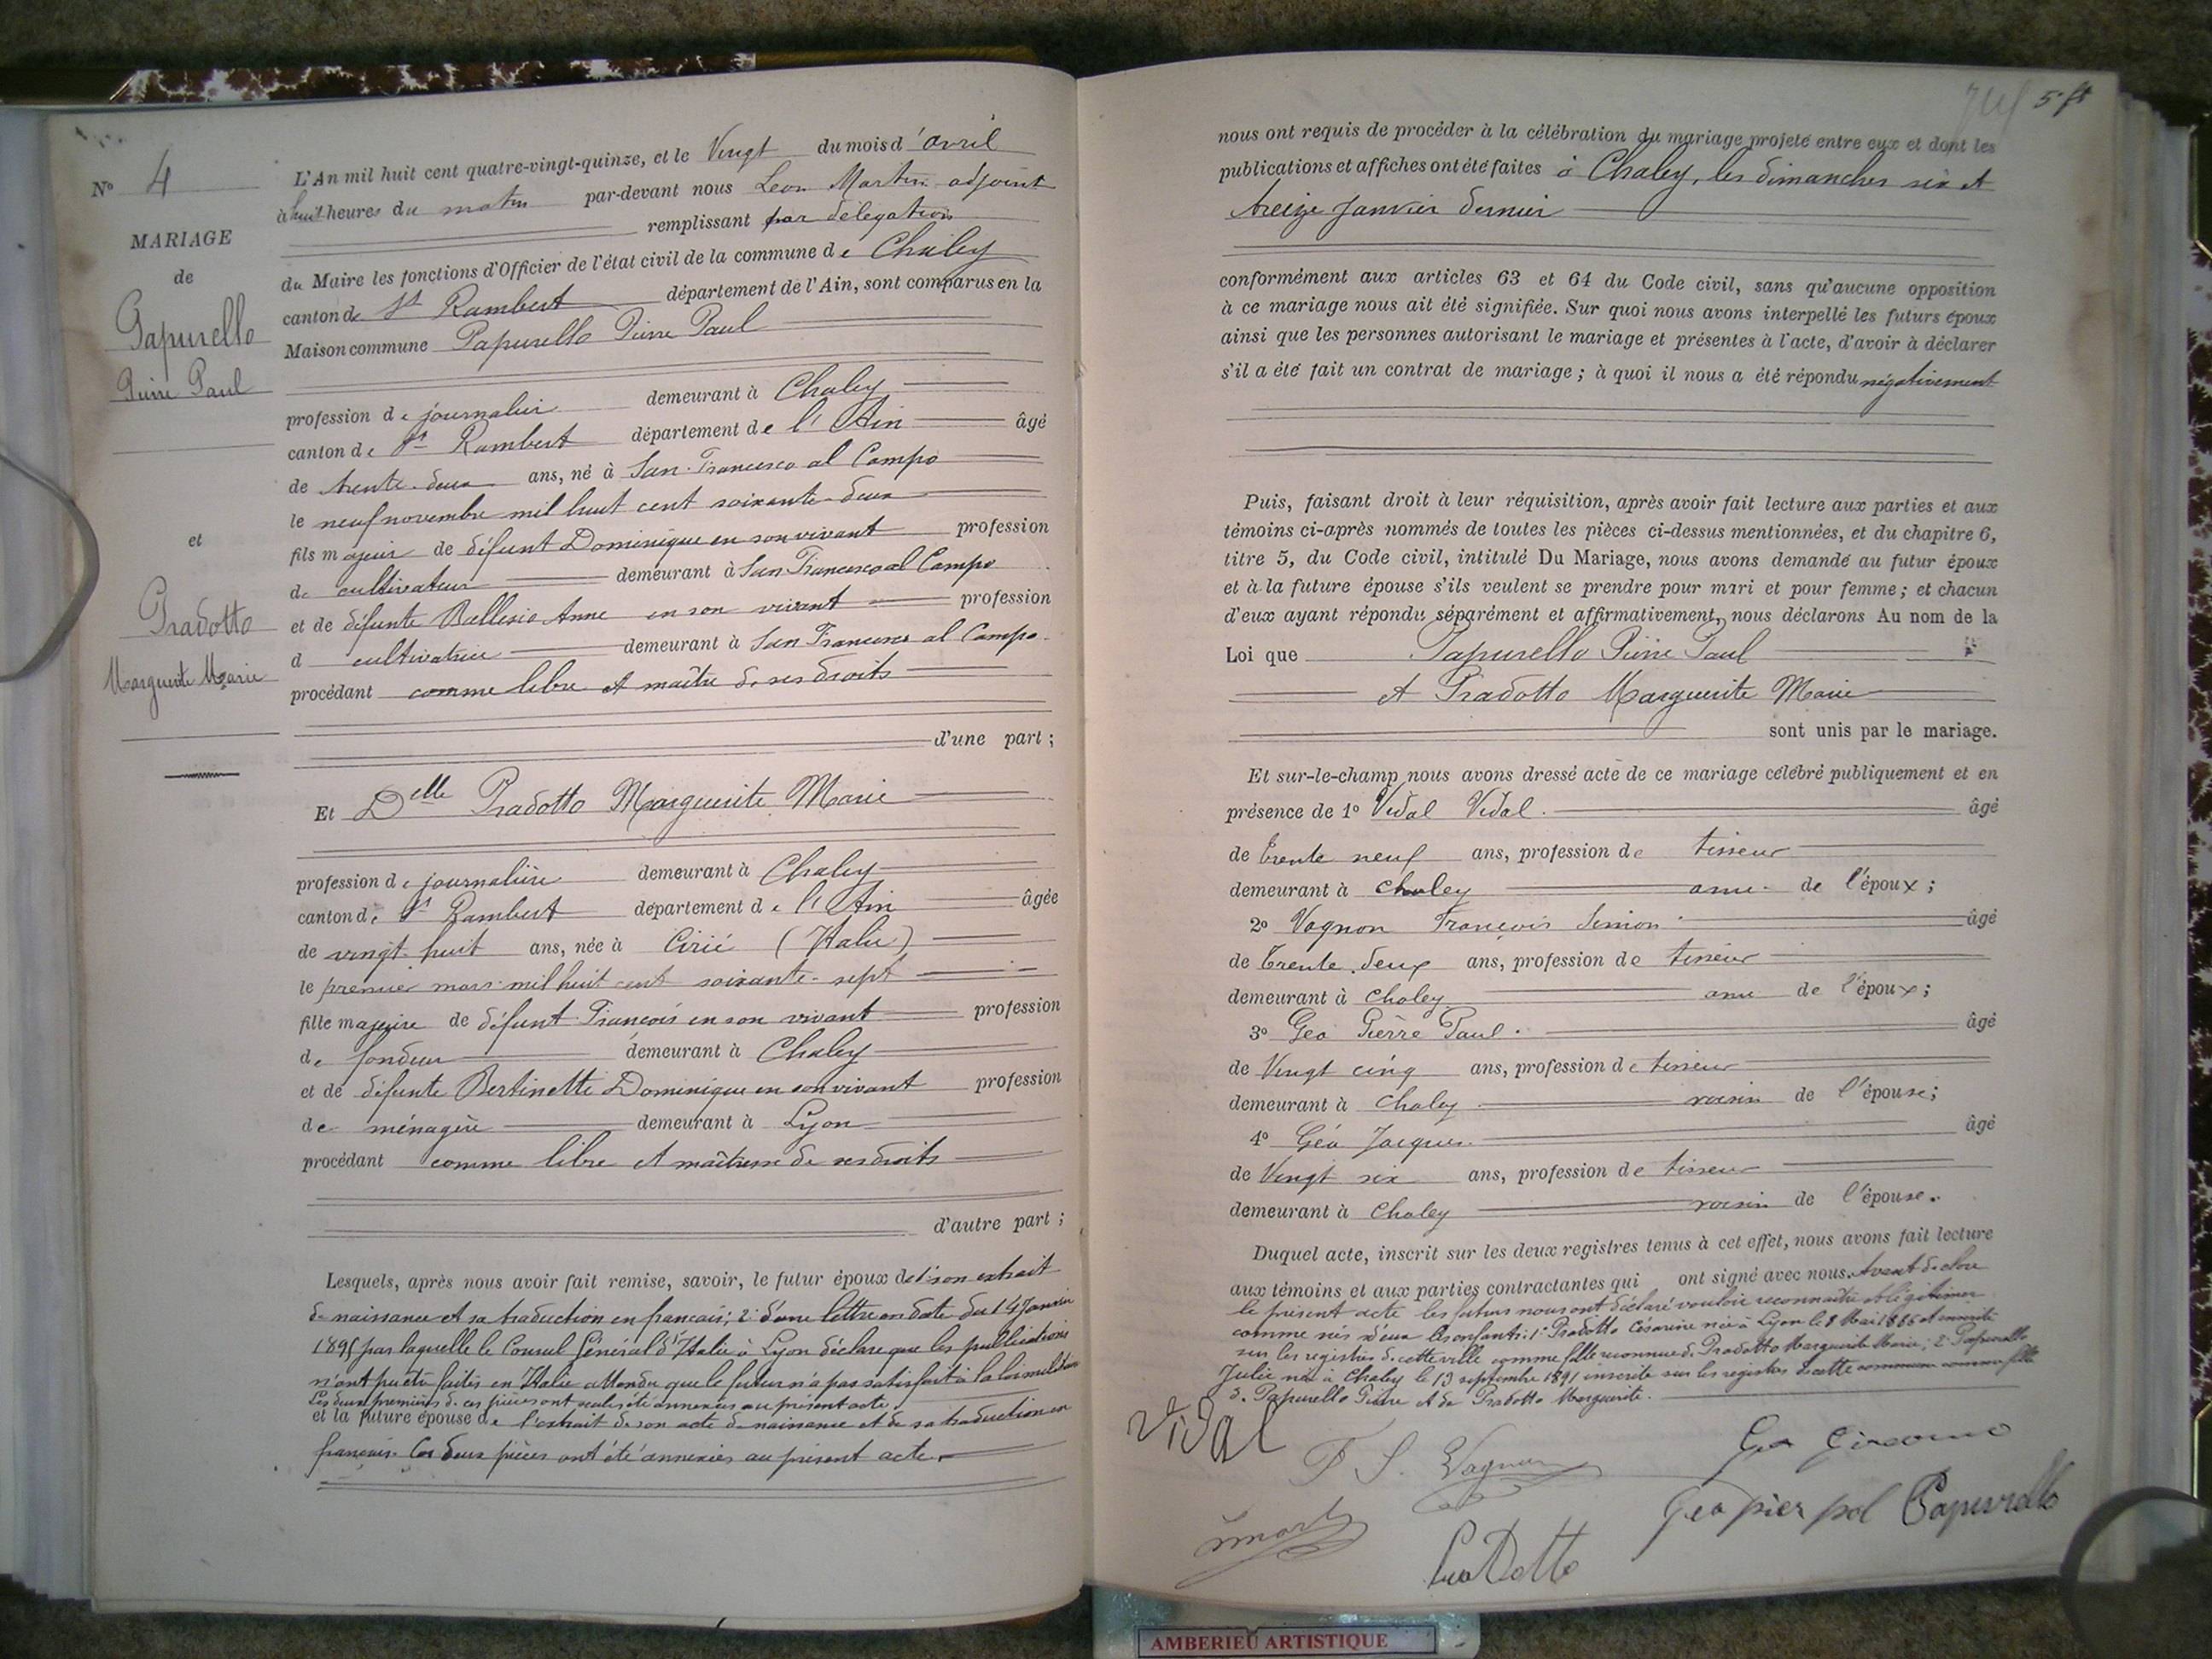 N° 4
MARIAGE
de
Papurello
Pierre Paul
et
Pradotto
Marguerite Marie
L'An mil huit cent quatre-vingt-quinze, et le Vingt du mois d'avril
à huit heures du matin par-devant nous Léon Martin adjoint
remplissant par délégation
du Maire les fonctions d'Officier de l'état civil de la commune de Chaley
canton de St Rambert département de l'Ain, sont comparus en la
Maison commune Papurello Pierre Paul
profession de journalier demeurant à Chaley
canton de St Rambert département de l'Ain âgé
de trente-deux ans, né à San Francesco al Campo
le neuf novembre mil huit cent soixante-deux
fils majeur de défunt Dominique en son vivant profession
de cultivateur demeurant à San Francesco al Campo
et de défunte Ballesio Anne en son vivant profession
d cultivatrice demeurant à San Francesco al Campo
procédant comme libre et maître de ses droits
d'une part ;
Et Delle Pradotto Marguerite Marie
profession de journalière demeurant à Chaley
canton de St Rambert département de l'Ain âgée
de vingt-huit ans, née à Cirié (Italie)
le premier mars mil huit cent soixante-sept
fille majeure de défunt François en son vivant profession
de fondeur demeurant à Chaley
et de défunte Bertinetti Dominique en son vivant profession
de ménagère demeurant à Lyon
procédant comme libre et maîtresse de ses droits
d'autre part ;
Lesquels, après nous avoir fait remise, savoir, le futur époux de 1° son extrait
de naissance et sa traduction en français; 2° d'une lettre en date du 14 Janvier
1895 par laquelle le Consul Général d'Italie à Lyon déclare que les publications
n'ont pu être faites en Italie attendu que le futur n'a pas satisfait à la loi militaire
Les deux premières de ces pièces ont seules été annexées au présent acte
et la future épouse de l'extrait de son acte de naissance et de sa traduction en
français. Ces deux pièces ont été annexées au présent acte.
5
nous ont requis de procéder à la célébration du mariage projeté entre eux et dont les
publications et affiches ont été faites à Chaley, les dimanches six et
treize Janvier dernier
conformément aux articles 63 et 64 du Code civil, sans qu'aucune opposition
à ce mariage nous ait été signifiée. Sur quoi nous avons interpellé les futurs époux
ainsi que les personnes autorisant le mariage et présentes à l'acte, d'avoir à déclarer
s'il a été fait un contrat de mariage ; à quoi il nous a été répondu négativement
Puis, faisant droit à leur réquisition, après avoir fait lecture aux parties et aux
témoins ci-après nommés de toutes les pièces ci-dessus mentionnées, et du chapitre 6,
titre 5, du Code civil, intitulé Du Mariage, nous avons demandé au futur époux
et à la future épouse s'ils veulent se prendre pour mari et pour femme ; et chacun
d'eux ayant répondu séparément et affirmativement, nous déclarons Au nom de la
Loi que Papurello Pierre Paul
et Pradotto Marguerite Marie
sont unis par le mariage.
Et sur-le-champ nous avons dressé acte de ce mariage célébré publiquement et en
présence de 1° Vidal Vidal. âgé
de trente neuf ans, profession de tisseur
demeurant à Chaley ami de l'époux ;
2° Vagnon François Simion âgé
de trente-deux ans, profession de tisseur
demeurant à Chaley ami de l'époux ;
3° Gea Pierre Paul. âgé
de Vingt cinq ans, profession de tisseur
demeurant à Chaley voisin de l'épouse ;
4° Géa Jacques. âgé
de Vingt six ans, profession de tisseur
demeurant à Chaley voisin de l'épouse.
Duquel acte, inscrit sur les deux registres tenus à cet effet, nous avons fait lecture
aux témoins et aux parties contractantes qui ont signé avec nous. Avant de clore
le présent acte les futurs nous ont déclaré vouloir reconnaître et légitimer
comme nés d'eux les enfants: 1° Pradotto Césarine née à Lyon le 8 Mai 1886 et inscrite
sur les registres de cette ville comme fille reconnue de Pradotto Marguerite Marie; 2° Papurello
Julie née à Chaley le 13 septembre 1891 inscrite sur les registres de cette commune comme fille
de Papurello Pierre et de Pradotto Marguerite.
Vidal
F S. Vagnon
Gea Giacomo
Gea pier pol
Papurello
Pradotto
AMBERIEU ARTISTIQUE